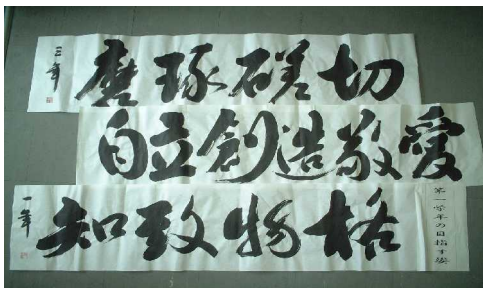 切磋琢磨
三年
自立創造敬愛
第一学年の目指す姿
格物致知
一年